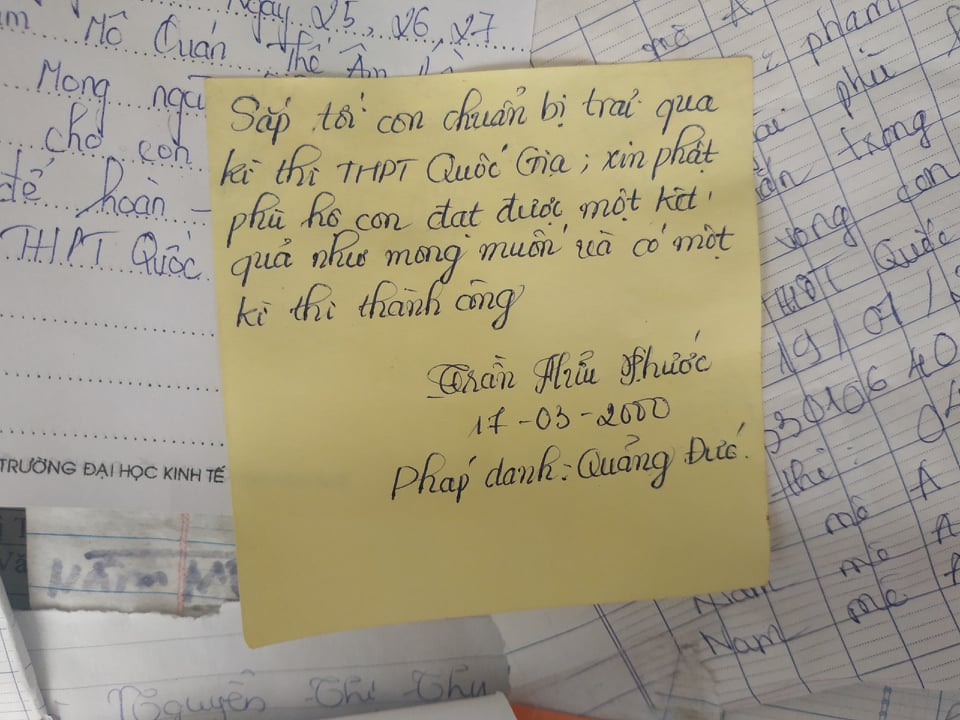 Ngày 25, 26, 27
Mô Quán Thế Âm
Mong
cho con
để hoàn
THPT Quốc
TRƯỜNG ĐẠI HỌC KINH TẾ
Sắp tới con chuẩn bị trải qua
kì thi THPT Quốc Gia; xin phật
phù hộ con đạt được một kết
quả như mong muốn và có một
kì thi thành công
Trần Hữu Phước
17-03-2000
Pháp danh: Quảng Đức.
mô A
phạm
phù
trong
vọng con
THPT Quốc
19/07/
thi: 04
mô A
mô A
Nam mô A
Nguyễn Thị Thu